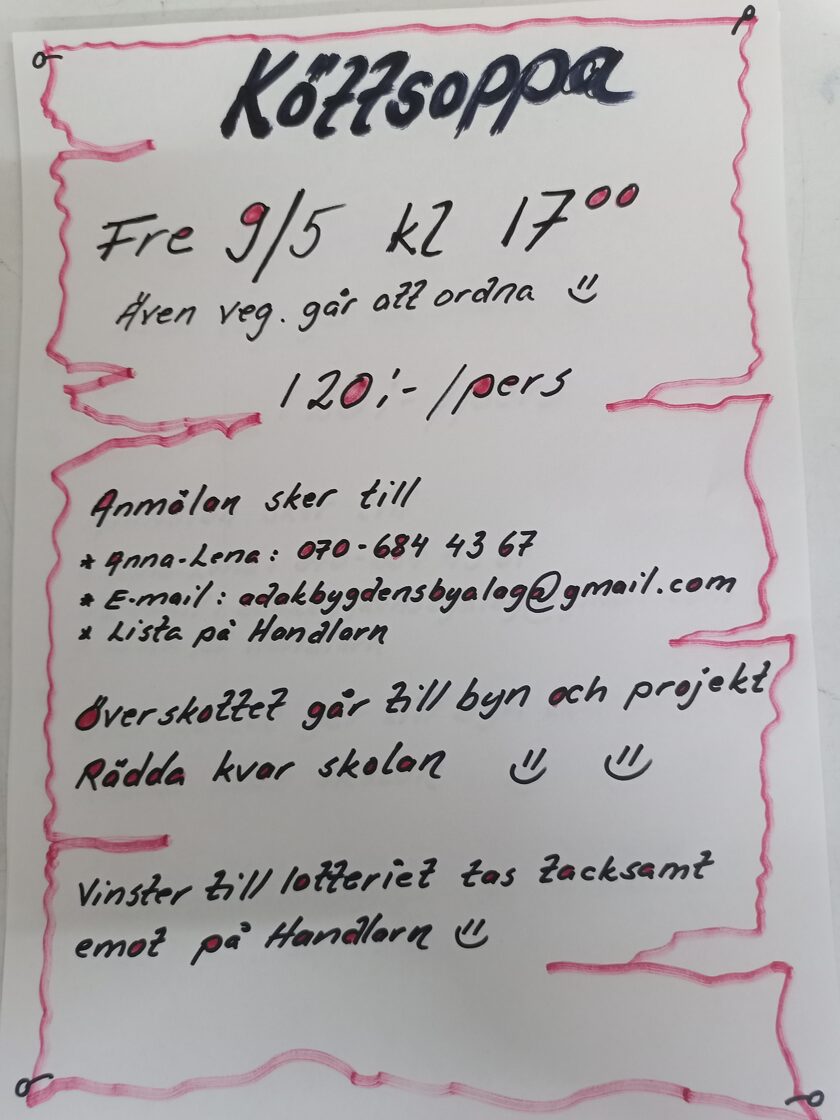 Köttsoppa
Fre 9/5 kl 17⁰⁰
Även veg. går att ordna
120:- /pers
Anmälan sker till
* Anna-Lena: 070-684 43 67
* E-mail: adakbygdensbyalag@gmail.com
* Lista på Handlarn
Överskottet går till byn och projekt
Rädda kvar skolan
Vinster till lotteriet tas tacksamt
emot på Handlarn